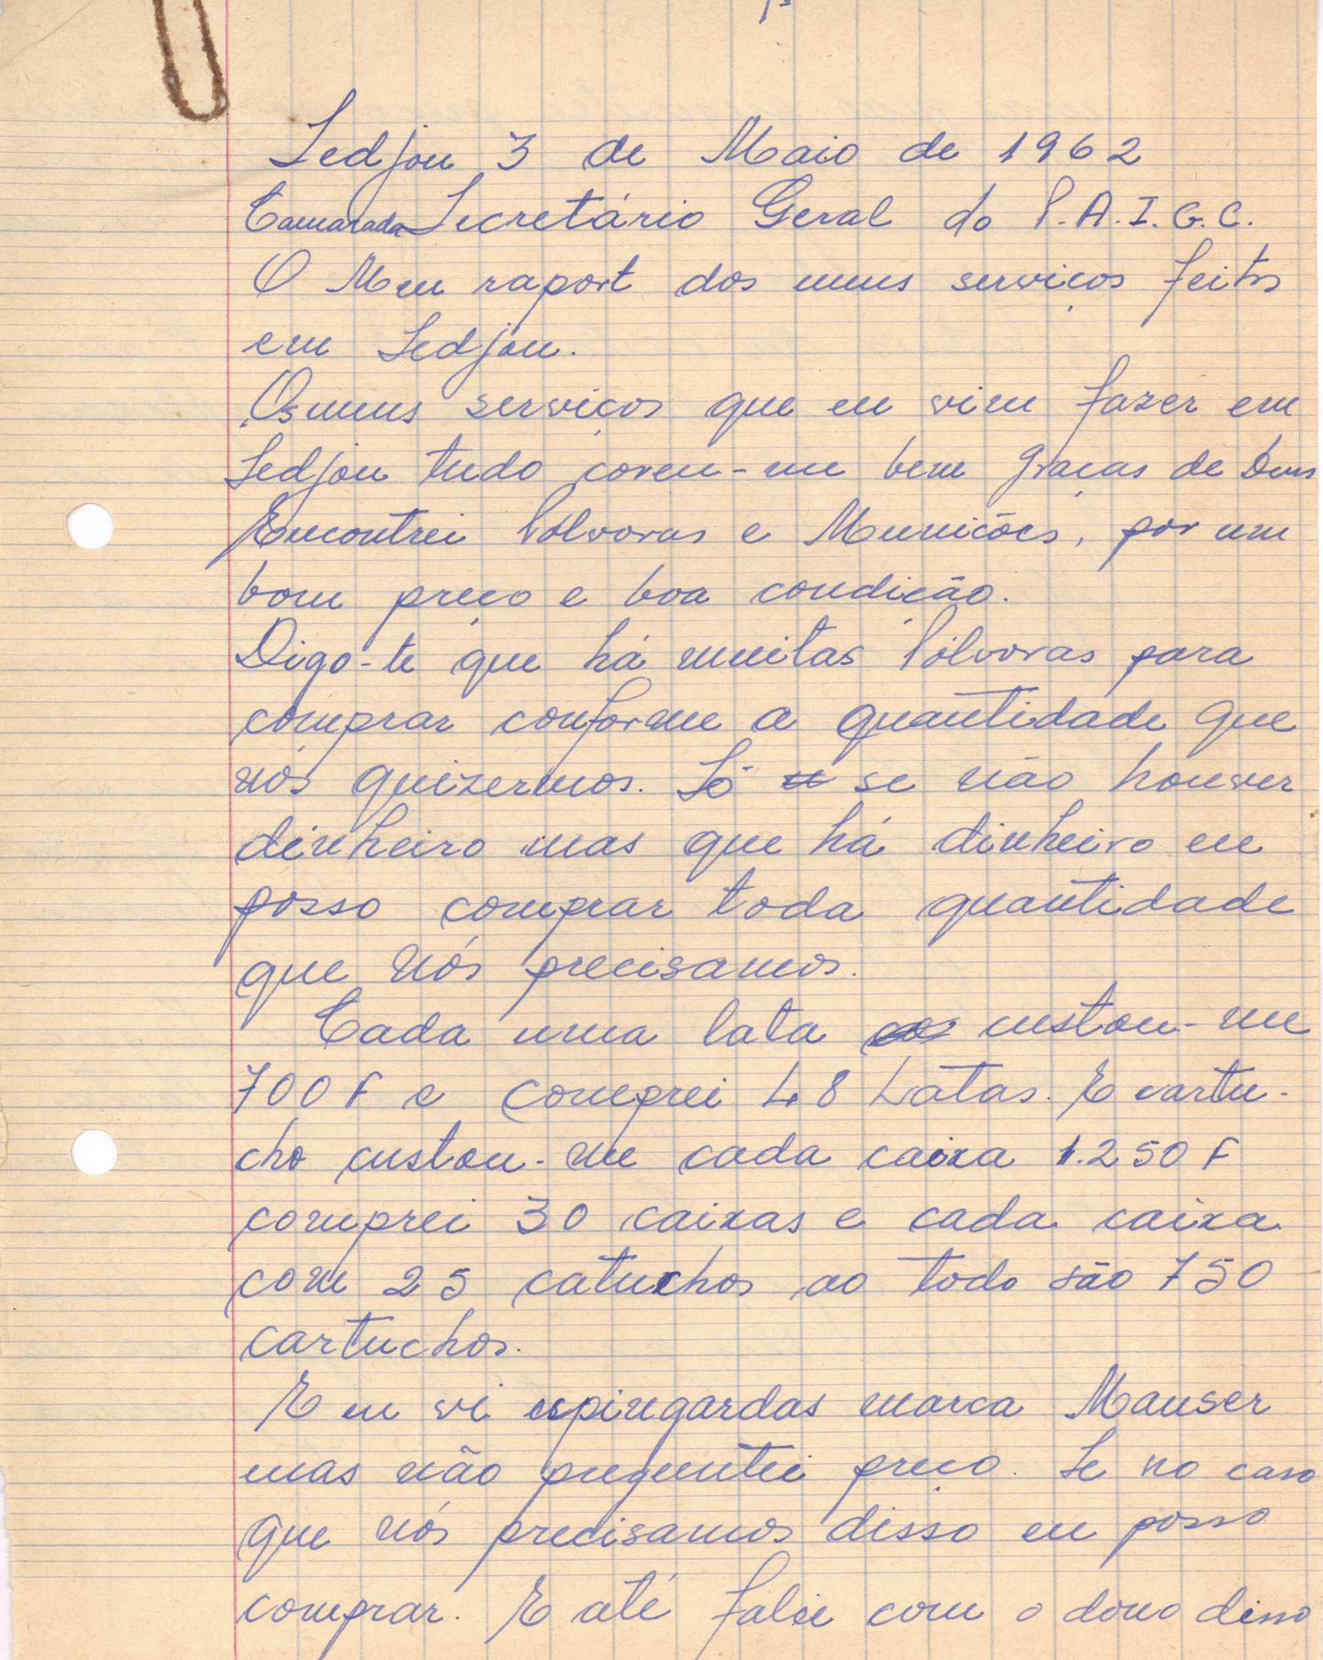 Sedjou 3 de Maio de 1962
Camarada Secretário Geral do P.A.I.G.C.
O Meu raport dos meus serviços feitos
em Sedjou.
Os meus serviços que eu vim fazer em
Sedjou tudo correu-me bem graças de Deus
Encontrei Pólvoras e Munições, por um
bom preço e boa condição.
Digo-te que há muitas Pólvoras para
comprar conforme a quantidade que
nós quizermos. Só se não houver
dinheiro mas que há dinheiro eu
posso comprar toda quantidade
que nós precisamos.
Cada uma lata custou-me
700F e comprei 48 Latas. E cartu-
cho custou-me cada caixa 1.250F
comprei 30 caixas e cada caixa
com 25 catuchos ao todo são 750
cartuchos.
E eu vi espingardas marca Mauser
mas não preguntei preço. Se no caso
que nós precisamos disso eu posso
comprar. E até falei com o dono disso